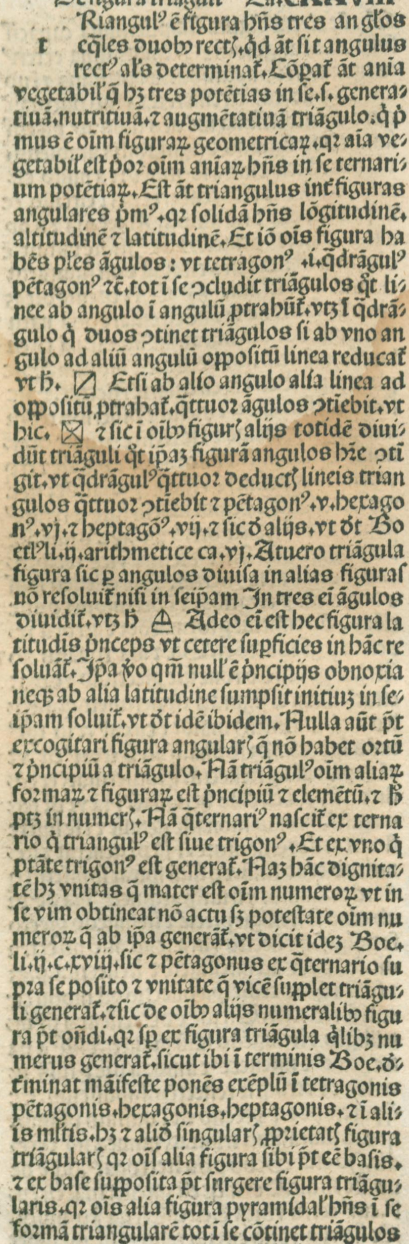 De figura trianguli Ca. CXXVIII
Riangulꝰ ē figura hñs tres anglos
t eq̄les duobꝫ rectꝭ. qd āt sit angulus
rectꝰ als determinat̄. Cōpat̄ āt anīa
vegetabil̕ q̄ hꝫ tres potētias in se .s. genera⸗
tiuā. nutritiuā. ⁊ augmētatiuā triāgulo. q̇ p̕
mus ē oīm figuraꝝ geometricaꝝ. qꝛ aīa ve⸗
getabil̕ est p̕or oīm aniaꝝ hñs in se ternari⸗
um potētiaꝝ. Est āt triangulus int̄ figuras
angulares p̕mꝰ. qꝛ solidā hñs lōgitudinē.
altitudinē ⁊ latitudinē. Et iō oīs figura ha
bēs ples āgulos: vt tetragonꝰ .i. q̄drāgulꝰ
pētagonꝰ ⁊c̄. tot ī se ꝯcludit triāgulos q̄t li⸗
nee ab angulo ī angulū ꝓtrahūt̄. vtꝫ ī q̄drā⸗
gulo q̇ duos ꝯtinet triāgulos si ab vno an
gulo ad aliū angulū oppositū linea reducat̄
vt h̕. Etsi ab alio angulo alia linea ad
oppositū ꝓtrahat̄. q̄ttuor āgulos ꝯtīebit. vt
hic. ⁊ sic ī oībꝫ figurꝭ alijs totidē diui⸗
dūt triāguli q̄t ip̄aꝫ figurā angulos hr̄e ꝯtī
git. vt q̄drāgulꝰ q̄ttuor deductꝭ lineis trian
gulos q̄ttuor ꝯtīebit ⁊ pētagonꝰ .v. hexago
nꝰ. vj. ⁊ heptagōꝰ. vij. ⁊ sic d̕ alijs. vt d̕t Bo
etiꝰ li. ij. arithmetice ca. vj. At vero triāgula
figura sic ꝑ angulos diuisa in alias figuras
nō resoluit̄ nisi in seip̄am In tres eī āgulos
diuidit̄. vtꝫ h̕ Adeo eī est hec figura la
titudīs p̕nceps vt cetere suꝑficies in hāc re
soluāt̄. Ip̄a v̕o qm̄ null̕ ē p̕ncipijs obnoxia
neqꝫ ab alia latitudine sumpsit initiuꝫ in se⸗
ip̄am soluit̄. vt d̕t idē ibidem. Nulla aūt p̄t
excogitari figura angularꝭ q̄ nō habet ortū
⁊ p̕ncipiū a triāgulo. Nā triāgulꝰ oīm aliaꝝ
formaꝝ ⁊ figuraꝝ est p̕ncipiū ⁊ elemētū. ⁊ h̕
ptꝫ in numerꝭ. Nā q̄ternariꝰ nascit̄ ex terna
rio q̇ triangulꝰ est siue trigonꝰ. Et ex vno q̇
ptāte trigonꝰ est generat̄. Naꝫ hāc dignita⸗
tē hꝫ vnitas q̄ mater est oīm numeroꝝ vt in
se vim obtineat nō actu sꝫ potestate oīm nu
meroꝝ q̄ ab ip̄a generāt̄. vt dicit ideꝫ Boe.
li. ij. c. xviij. sic ⁊ pētagonus ex q̄ternario su
pra se posito ⁊ vnitate q̄ vicē supplet triāgu⸗
li generat̄. ⁊ sic de oībꝫ alijs numeralibꝫ figu
ra p̄t oñdi. qꝛ sp̄ ex figura triāgula q̇libꝫ nu
merus generat̄. sicut ibi ī terminis Boe. d̕⸗
t̄minat māifeste ponēs exēplū ī tetragonis
pētagonis. hexagonis. heptagonis. ⁊ ī ali⸗
is mltis. hꝫ ⁊ aliō singularꝭ ꝓprietatꝭ figura
triāgularꝭ qꝛ oīs alia figura sibi p̄t eē basis.
⁊ ex base supposita p̄t surgere figura triāgu⸗
laris. qꝛ oīs alia figura pyramidal̕ hñs ī se
formā triangularē tot ī se cōtinet triāgulos